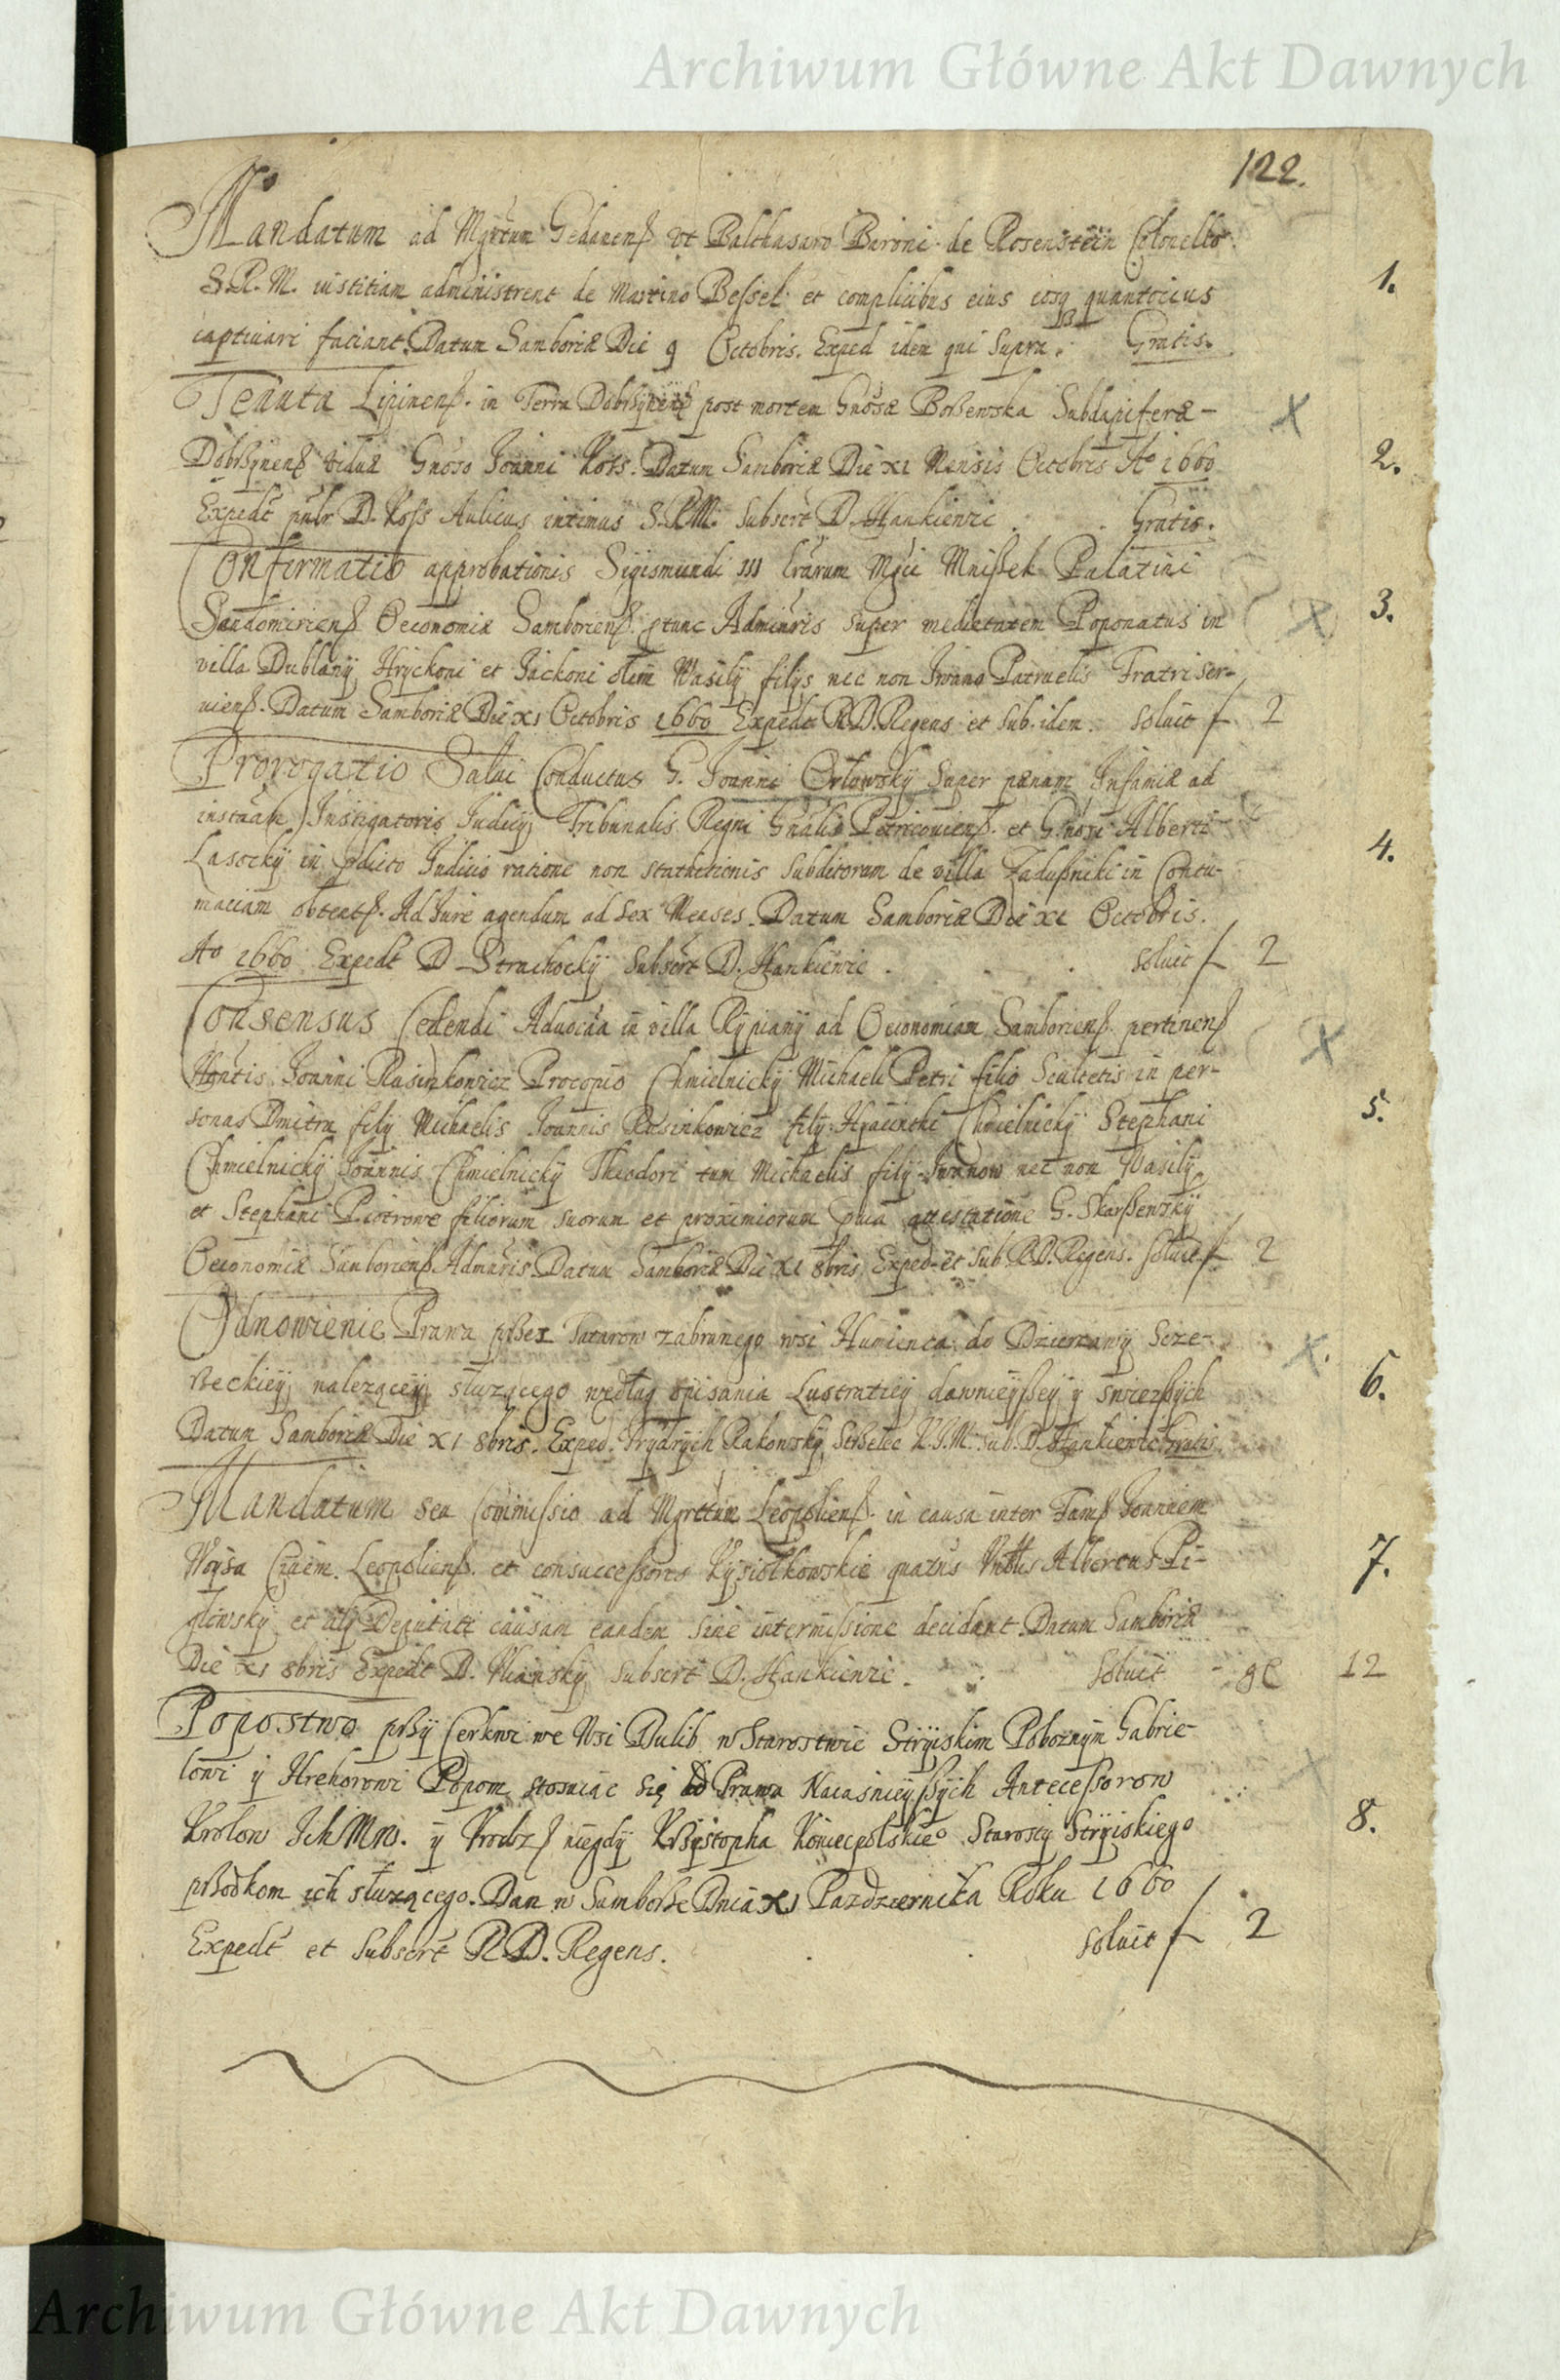 Archiwum Główne Akt Dawnych
122.
Mandatum ad Mgrtum Gedanenß. vt Balthasaro Baroni de Rosenstein Colonello
S.R.M. iustitiam administrent de Martino Bessel et complicibus eius eosq quantocius 1.
captivari faciant. Datum Samboriæ Die 9 Octobris. Exped idem qui supra. Gratis.
Tenuta Lipinenß. in Terra Dobrßynenß post mortem Gnosæ Boßewska Subdapiferæ –
Dobrßynenß viduæ Gnoso Joanni Kos. Datum Samboriæ Die XI Mensis Octobris Ao 1660 2.
Expedt D. Koss Aulicus intimus S.R.M. Subscrt D. Hankiewic. Gratis.
Confirmatio approbationis Sigismundi III lrarum Mgci Mnißek Palatini
Sandomirienß Oeconomiæ Samborienß. ptunc Adminris super medietatem Poponatus in 3.
villa Dublany Hryckoni et Jackoni olim Wasily filys nec non Iwano Patruelis Fratri ser-
vienß. Datum Samboriæ Die XI Octobris 1660 Expedt R.D. Regens et sub. idem. soluit f 2
Prorogatio Salvi Conductus G. Joanni Orłowsky super pænam Infamiæ ad
instâam Instigatoris Judicy Tribunalis Regni Gnalis Petricouienß. et Gnosi Alberti
Lasocky in pdicto Judicio ratione non statuitionis subditorum de villa Zadußniki in Contu- 4.
maciam obtentß. Ad Jure agendum ad sex Menses. Datum Samboriæ Die XI Octobris.
Ao 1660 Expedt D Strachocky Subscrt D. Hankiewic. soluit f 2
Consensus Cedendi Advocâa in villa Rypiany ad Oeconomiam Samborienß. pertinenß
Hontis Joanni Rusinkowicz Procopio Chmielnicky Michaeli Petri filio Scultetis in per-
sonas Dmitra fily Michaelis Joannis Rusinkowicz fily Hyacinthi Chmielnicky Stephani 5.
Chmielnicky Joannis Chmielnicky Theodori tum Michaelis fily Iwanow nec non Wasily
et Stephani Piotrowe filiorum suorum et proximiorum pvia attestatione G. Skarßewsky
Oeconomiæ Samborienß. Admnris. Datum Samboriæ Die XI 8bris Exped. et Sub R.D. Regens. soluit f 2
Odnowienie Prawa przez Tatarow zabranego wsi Humienca do Dzierzawy Szcze-
rzeckiey nalezącey słuzącego według opisania Lustratiey dawnieyßey y swiezßych 6.
Datum Samboriæ Die XI 8bris. Exped. Frydrych Rakowsky Strzelec K.J.M. Sub. D. Hankiewic Gratis
Mandatum seu Commissio ad Mgrtum Leopolienß. in causa inter Famß Joannem
Woysa Ciuem Leopolienß. et consuccessores Kysiolkowskie quatus Nbtus Albertus Pi- 7.
głowsky et aly Deputati causam eandem sine intermissione decidant. Datum Samboriæ
Die XI 8bris Expedt D. Subscrt D. Hankiewic. soluit – gl 12
Popostwo przy Cerkwi we Wsi Dulib w Starostwie Stryiskim Poboznym Gabrie-
lowi y Hrehorowi Popom stosuiąc się do Prawa Naiasnieyßych Antecessorow
Krolow Ich Mw. y Wrodzß niegdy Krzysztopha Koniecpolskieo Starosty Stryiskiego 8.
przodkom ich słuzącego. Dan w Samborze Dnia XI Pazdziernika Roku 1660
Expedt et Subscrt R.D. Regens. soluit f 2
Archiwum Główne Akt Dawnych